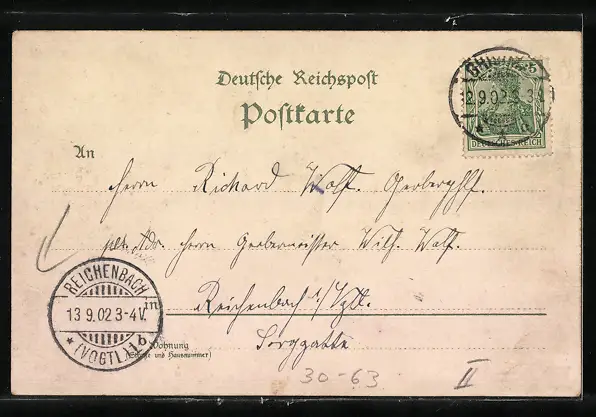 Deutsche Reichspost
Postkarte
12.9.02
DEUTSCHES REICH
An
Herrn Richard Wolf. Gerberghlf.
plr. Adr. Herrn Gerbermeister Wilh. Wolf.
REICHENBACH
13 9.02 3-4V.
* (VOGTL.) 1 b
in
Reichenbach i/Vgtl.
Wohnung
(Straße und Hausnummer)
Sorggatte
30-63
II